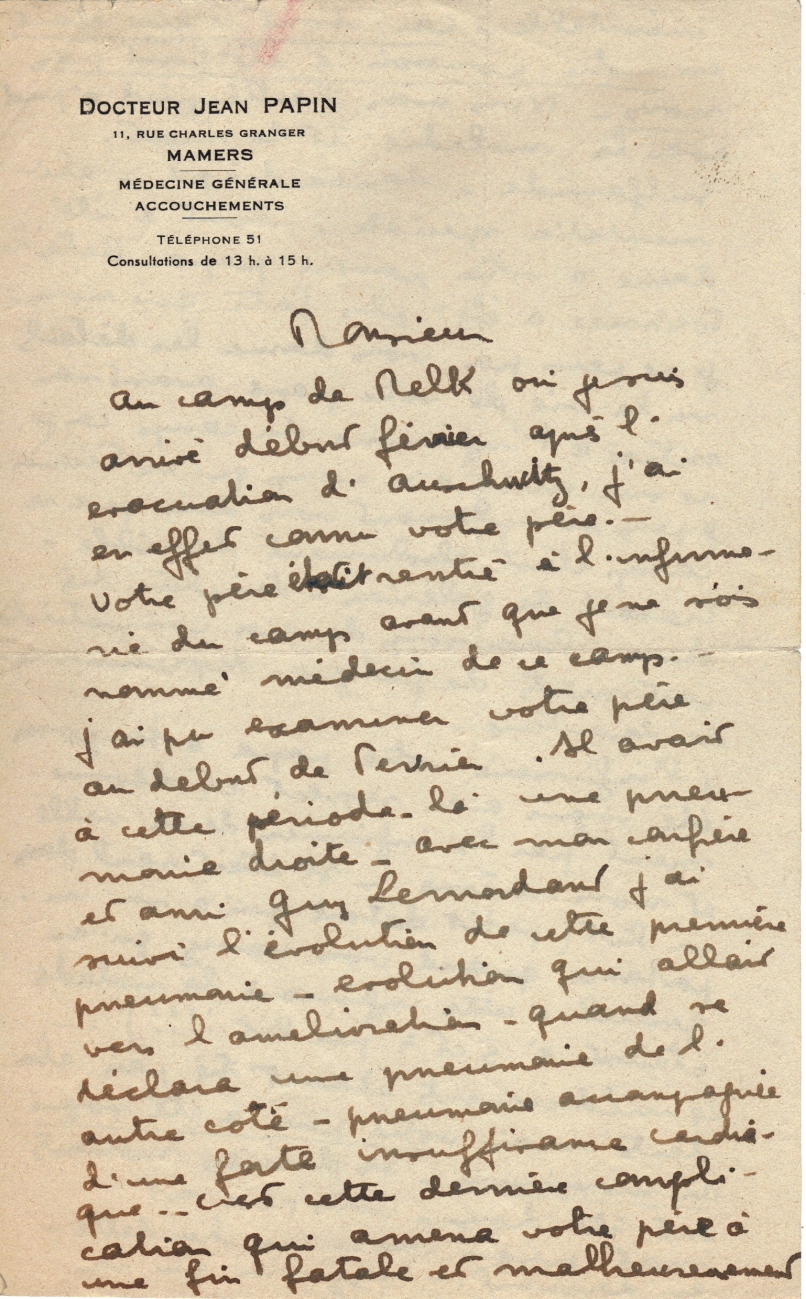 DOCTEUR JEAN PAPIN
11, RUE CHARLES GRANGER
MAMERS
MÉDECINE GÉNÉRALE
ACCOUCHEMENTS
TÉLÉPHONE 51
Consultations de 13 h. à 15 h.
Monsieur
au camp de Melk où je suis
arrivé début février après l'
evacuation d'Auschwitz, j'ai
en effet connu votre père. —
Votre père était rentré à l'infirme-
rie du camp avant que je ne sois
nommé médecin de ce camp. -
j'ai pu examiner votre père
au debut de Fevrier. Il avait
à cette période-là une pneu-
monie droite - avec mon confrère
et ami Guy Lemordant j'ai
suivi l'évolution de cette première
pneumonie - evolution qui allait
vers l'amelioration - quand se
déclara une pneumonie de l'
autre coté - pneumonie accompagnée
d'une forte insuffisance cardia-
que -- c'est cette dernière compli-
cation qui amena votre père à
une fin fatale et malheureusement